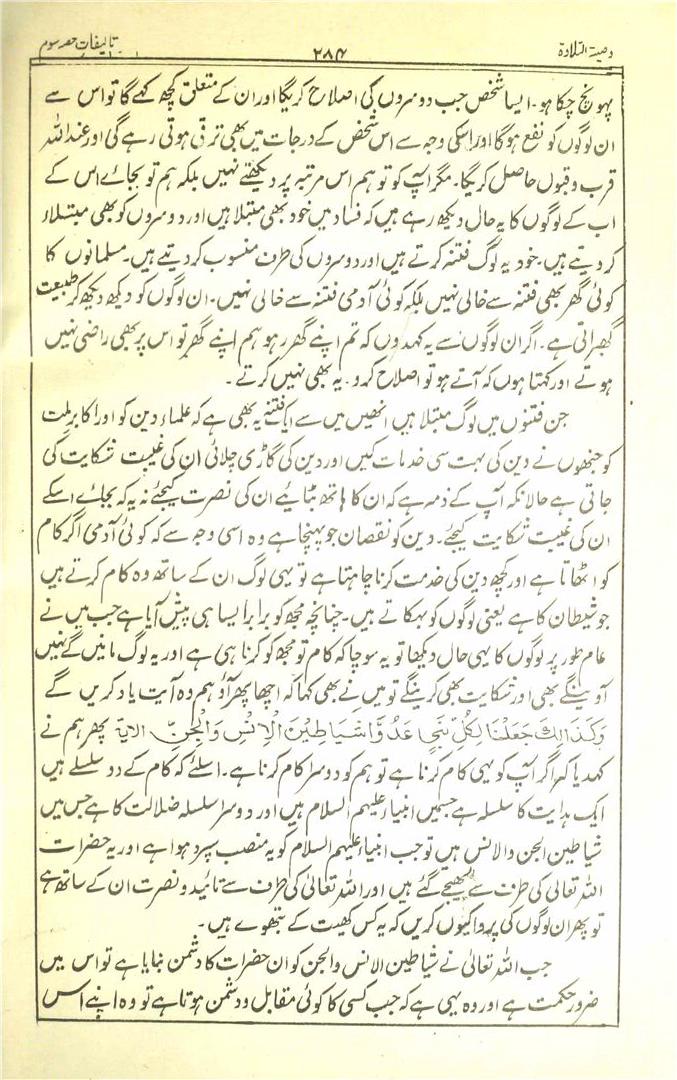 وصیۃ التلاوۃ ۲۸۴ تالیفات حصہ سوم
پہونچ چکا ہو۔ ایسا شخص جب دوسروں کی اصلاح کریگا اور ان کے متعلق کچھ کہے گا تو اس سے
ان لوگوں کو نفع ہوگا اور اسکی وجہ سے اس شخص کے درجات میں بھی ترقی ہوتی رہے گی اور عند اللہ
قرب و قبول حاصل کریگا۔ مگر آپ کو تو ہم اس مرتبہ پر دیکھتے نہیں بلکہ ہم تو بجائے اس کے
اب کے لوگوں کا یہ حال دیکھ رہے ہیں کہ فساد میں خود بھی مبتلا ہیں اور دوسروں کو بھی مبتلاء
کر دیتے ہیں۔ خود یہ لوگ فتنہ کرتے ہیں اور دوسروں کی طرف منسوب کر دیتے ہیں۔ مسلمانوں کا
کوئی گھر بھی فتنہ سے خالی نہیں بلکہ کوئی آدمی فتنہ سے خالی نہیں۔ ان لوگوں کو دیکھ دیکھ کر طبیعت
گھبراتی ہے۔ اگر ان لوگوں سے یہ کہدوں کہ تم اپنے گھر رہو ہم اپنے گھر تو اس پر بھی راضی نہیں
ہوتے اور کہتا ہوں کہ آتے ہو تو اصلاح کرو۔ یہ بھی نہیں کرتے ۔
جن فتنوں میں لوگ مبتلا ہیں انھیں میں سے ایک فتنہ یہ بھی ہے کہ علماء دین کو اور اکابر ملت
کو جنھوں نے دین کی بہت سی خدمات کیں اور دین کی گاڑی چلائی ان کی غیبت شکایت کی
جاتی ہے حالانکہ آپ کے ذمہ ہے کہ ان کا ہاتھ بٹائیے ان کی نصرت کیجئے نہ یہ کہ بجائے اسکے
ان کی غیبت شکایت کیجئے۔ دین کو نقصان جو پہنچا ہے وہ اسی وجہ سے کہ کوئی آدمی اگر کام
کو اٹھاتا ہے اور کچھ دین کی خدمت کرنا چاہتا ہے تو یہی لوگ ان کے ساتھ وہ کام کرتے ہیں
جو شیطان کا ہے یعنی لوگوں کو بہکاتے ہیں۔ چنانچہ مجھ کو برابر ایسا ہی پیش آیا ہے جب میں نے
عام طور پر لوگوں کا یہی حال دیکھا تو یہ سوچا کہ کام تو مجھ کو کرنا ہی ہے اور یہ لوگ مانیں گے نہیں
آوینگے بھی اور شکایت بھی کرینگے تو میں نے بھی کہا کہ اچھا پھر آؤ ہم وہ آیت یاد کریں گے
وَكَذَالِكَ جَعَلْنَا لِكُلِّ نَبِيٍّ عَدُوًّا شَيَاطِيْنَ الْاِنْسِ وَالْجِنِّ الایۃ پھر ہم نے
کہدیا کہ اگر آپ کو یہی کام کرنا ہے تو ہم کو دوسرا کام کرنا ہے۔ اسلئے کہ کام کے دو سلسلے ہیں
ایک ہدایت کا سلسلہ ہے جسمیں انبیاء علیہم السلام ہیں اور دوسرا سلسلہ ضلالت کا ہے جس میں
شیاطین الجن والانس ہیں تو جب انبیاء علیہم السلام کو یہ منصب سپرد ہوا ہے اور یہ حضرات
اللہ تعالیٰ کی طرف سے بھیجے گئے ہیں اور اللہ تعالیٰ کی طرف سے تائید و نصرت ان کے ساتھ ہے
تو پھر ان لوگوں کی پروا کیوں کریں کہ یہ کس کھیت کے بتھوے ہیں ۔
جب اللہ تعالیٰ نے شیاطین الانس والجن کو ان حضرات کا دشمن بنایا ہے تو اس میں
ضرور حکمت ہے اور وہ یہی ہے کہ جب کسی کا کوئی مقابل و دشمن ہوتا ہے تو وہ اپنے اس